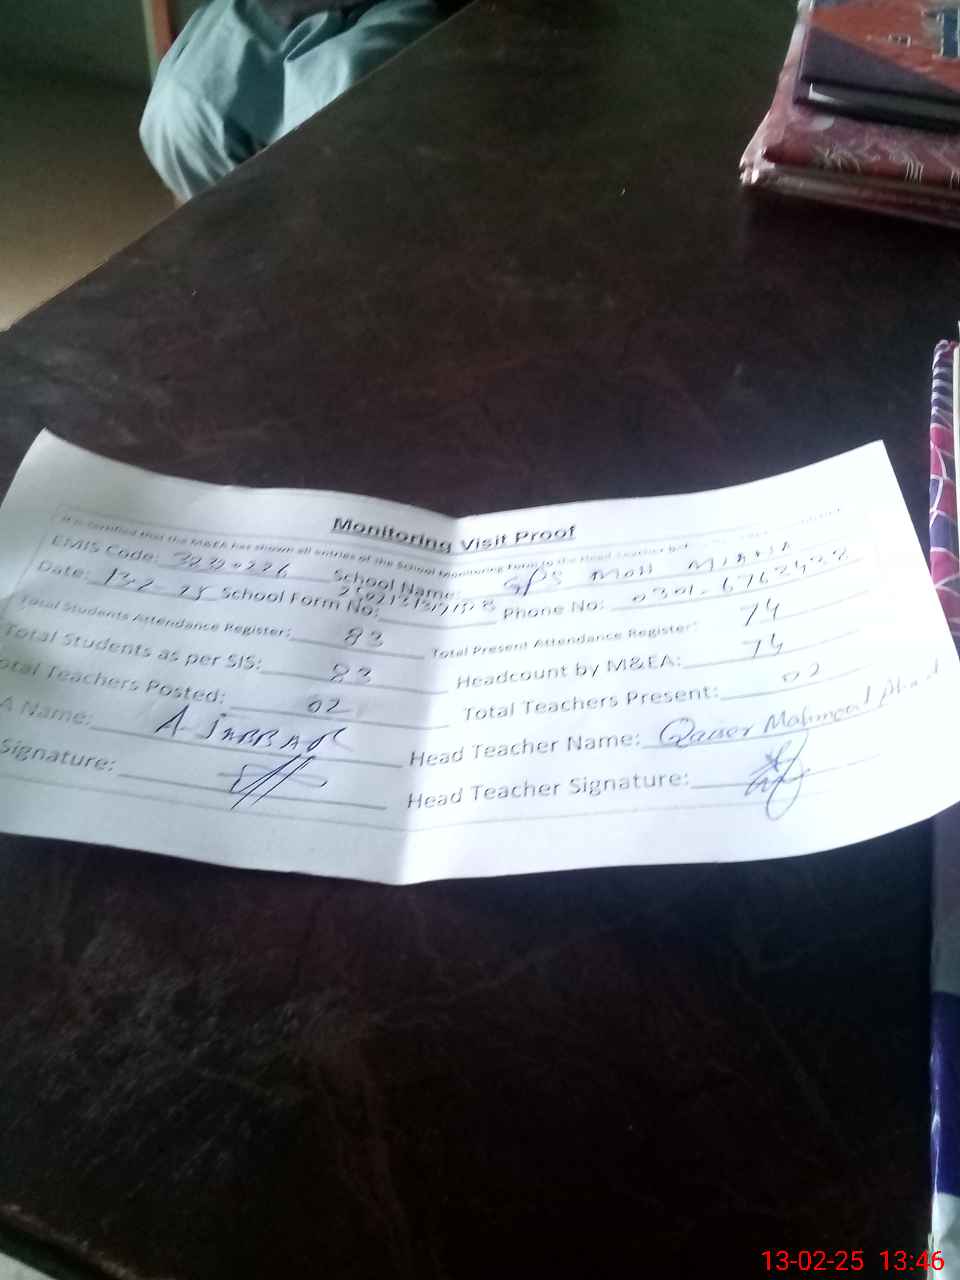 Monitoring Visit Proof
It is certified that the M&EA has shown all entries of the School Monitoring Form to the Head Teacher
EMIS Code: School Name: GPS Moh
Date: 13-2-25 School Form No: Phone No:
Total Students Attendance Register: 83 Total Present Attendance Register: 74
Total Students as per SIS: 83 Headcount by M&EA: 74
Total Teachers Posted: 02 Total Teachers Present: 02
A Name: A JABBAR Head Teacher Name: Qaiser Mahmood
Signature: Head Teacher Signature:
13-02-25 13:46